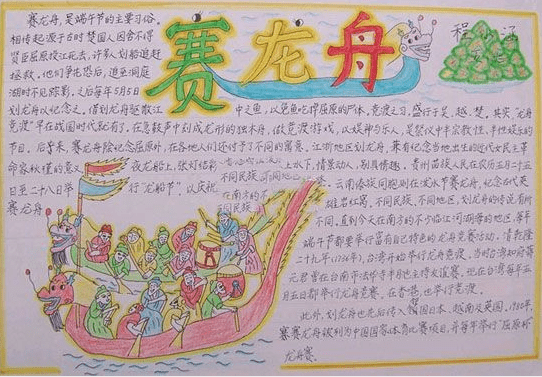 赛龙舟
程
赛龙舟,是端午节的主要习俗。
相传起源于古时楚国人因舍不得
贤臣屈原投江死去,许多人划船追赶
拯救。他们争先恐后,追至洞庭
湖时不见踪影,之后每年5月5日
划龙舟以纪念之。借划龙舟驱散江
中之鱼,以免鱼吃掉屈原的尸体。竞渡之习,盛行于吴、越、楚。其实,"龙舟
竞渡"早在战国时代就有了。在急鼓声中划成龙形的独木舟,做竞渡游戏,以娱神与乐人,是祭仪中半宗教性、半娱乐性的
节目。后来,赛龙舟除纪念屈原外,在各地人们还付予了不同的寓意。江浙地区划龙舟,兼有纪念当地出生的近代女民主革
命家秋瑾的意义。夜龙船上,张灯结彩
上水下,情景动人,别具情趣。贵州苗族人民在农历五月二十五
日至二十八日举行"龙船节",以庆祝
云南傣族同胞则在泼水节赛龙舟,纪念古代英
雄岩红窝。不同民族、不同地区,划龙舟的传说有所
不同。直到今天在南方的不少临江河湖海的地区,每年
端午节都要举行富有自己特色的龙舟竞赛活动。清乾隆
二十九年(1736年),台湾开始举行龙舟竞渡。当时台湾知府蒋
元君曾在台南市法华寺半月池主持友谊赛。现在台湾每年五
月五日都举行龙舟竞赛。在香港,也举行竞渡。
此外,划龙舟也先后传入邻国日本、越南及英国。1980年,
赛龙舟被列为中国国家体育比赛项目,并每年举行"屈原杯"
龙舟赛。